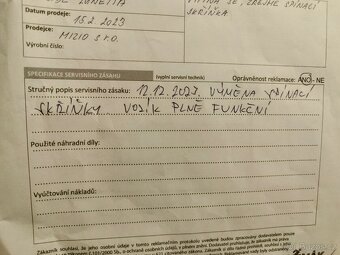 Datum prodeje: 15.2.2023
Prodejce: MIZIO s.r.o.
Výrobní číslo:
SE, ZŘEJMĚ SPÍNACÍ
SKŘÍŇKA
SPECIFIKACE SERVISNÍHO ZÁSAHU (vyplní servisní technik) Oprávněnost reklamace: ANO - NE
Stručný popis servisního zásahu: 12.12.2023 VÝMĚNA SPÍNACÍ
SKŘÍŇKY VOZÍK PLNĚ FUNKČNÍ
Použité náhradní díly:
Vyúčtování nákladů:
Zákazník souhlasí, že jeho osobní údaje v tomto reklamačním protokolu uvedené budou zpracovány dodavatelem